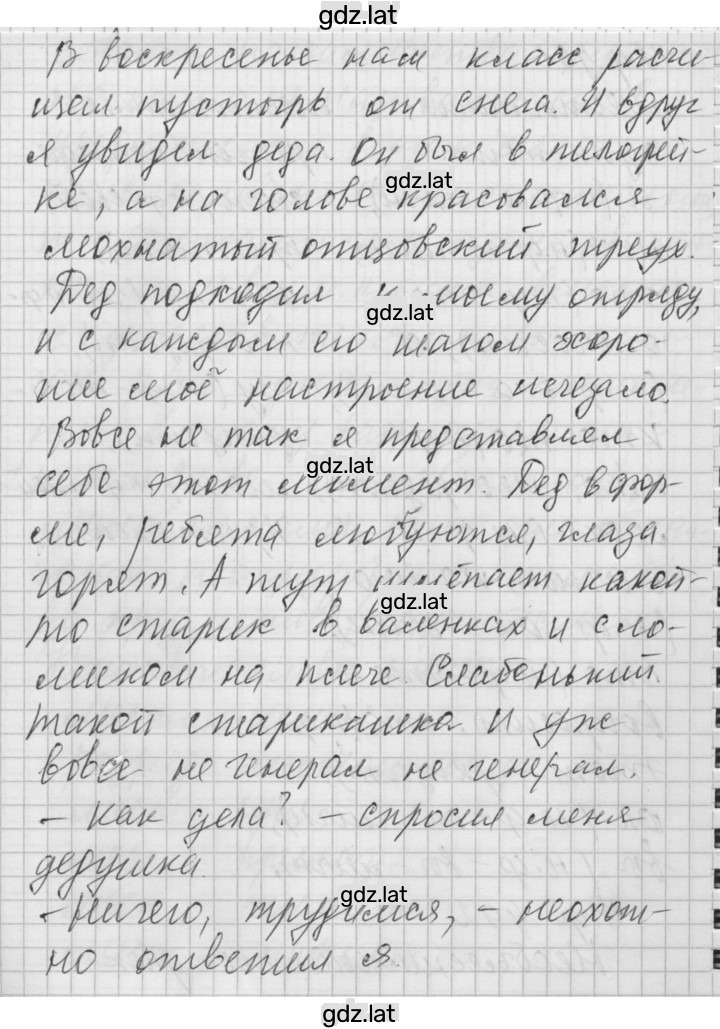 gdz.lat
В воскресенье наш класс расчи-
щал пустырь от снега. И вдруг
я увидел деда. Он был в телогрей-
gdz.lat
ке, а на голове красовался
мохнатый отцовский треух.
Дед подходил к моему отряду,
gdz.lat
и с каждым его шагом хоро-
шее моё настроение исчезало.
Вовсе не так я представлял
gdz.lat
себе этот момент. Дед в фор-
ме, ребята любуются, глаза
горят. А тут шлёпает какой-
gdz.lat
то старик в валенках и с ло-
миком на плече. Слабенький
такой старикашка и уж
вовсе не генерал не генерал.
- Как дела? - спросил меня
дедушка.
gdz.lat
- Ничего, трудимся, - неохот-
но ответил я.
gdz.lat